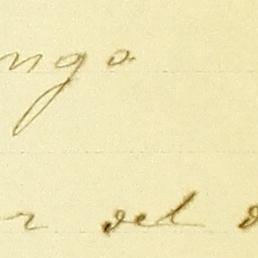 ngo
r del d